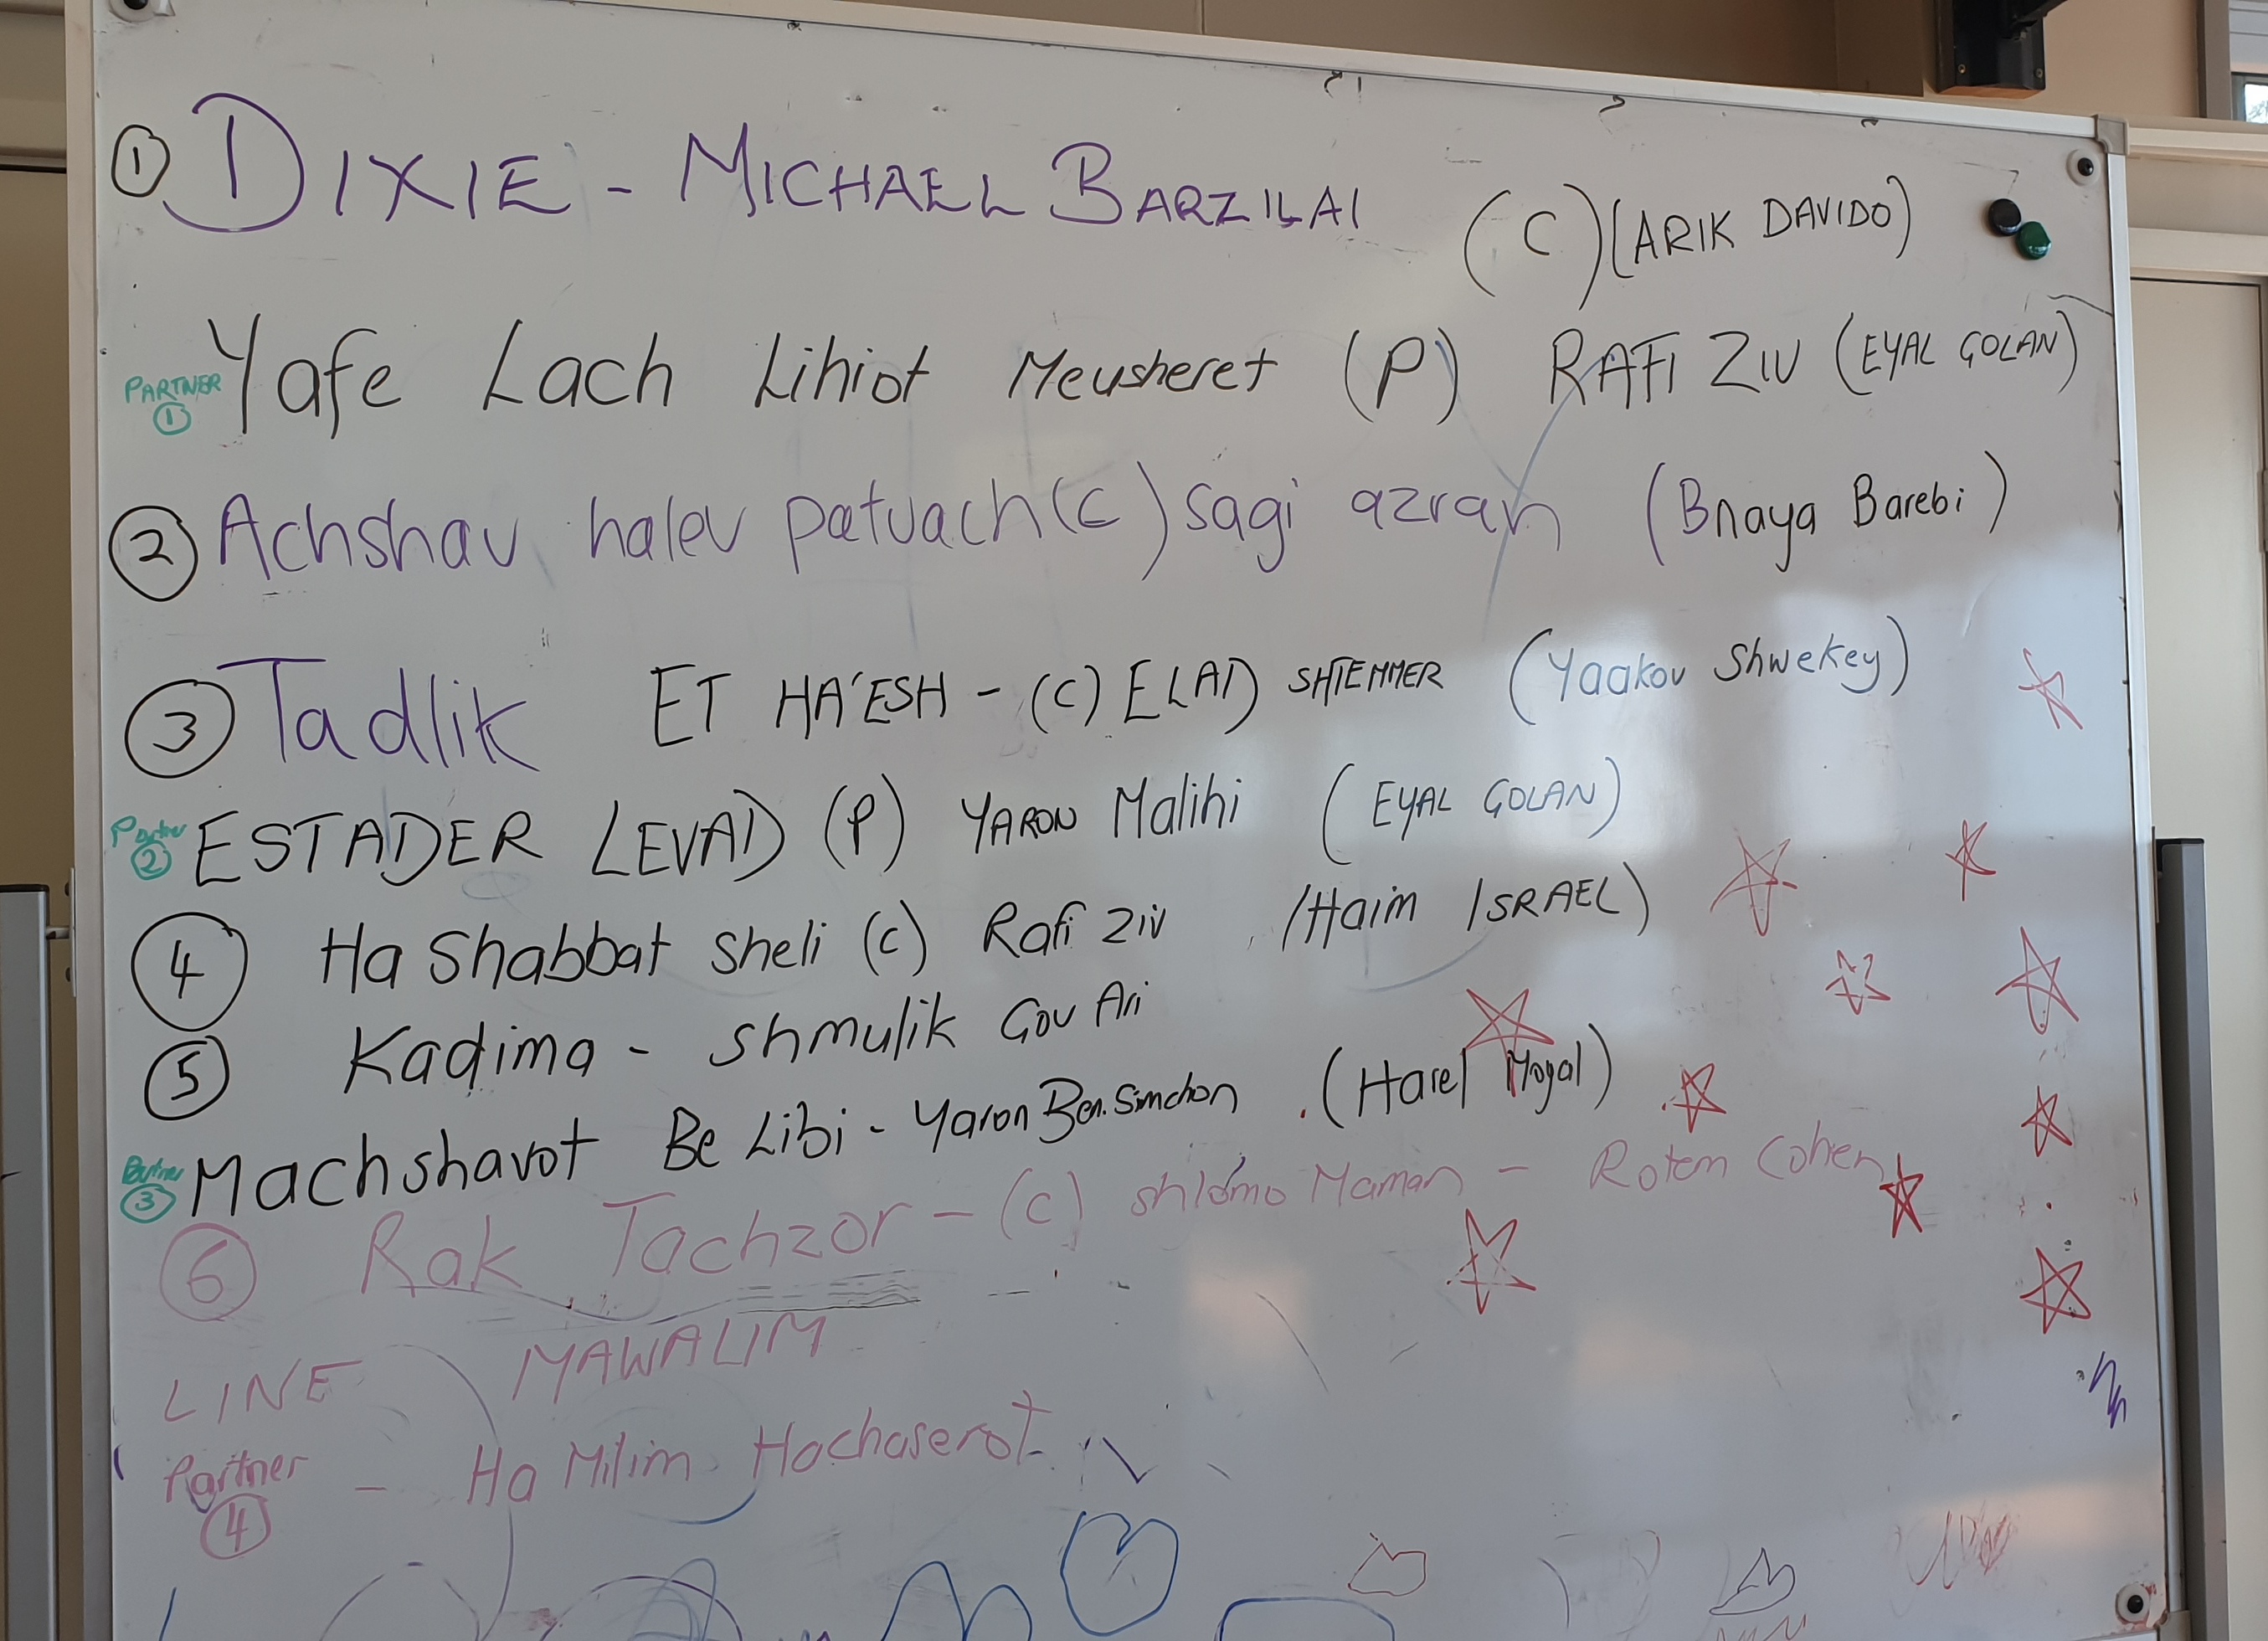 ① DIXIE - MICHAEL BARZILAI (C) (ARIK DAVIDO)
PARTNER ① Yafe Lach Lihiot Meusheret (P) RAFI ZIV (EYAL GOLAN)
② Achshav halev patuach (c) sagi azran (Bnaya Barebi)
③ Tadlik ET HA'ESH - (C) ELAD SHTEMMER (Yaakov Shwekey)
Partner ② ESTADER LEVAD (P) YARON Malihi (EYAL GOLAN)
④ Ha Shabbat sheli (c) Rafi Ziv (Haim ISRAEL)
⑤ Kadima - Shmulik Gov Ari
Partner ③ Machshavot Be Libi - Yaron Ben.Simchon (Harel Moyal)
⑥ Rak Tachzor - (c) shlomo Maman - Rotem Cohen
LINE MAWALIM
Partner ④ - Ha Milim Hachaserot